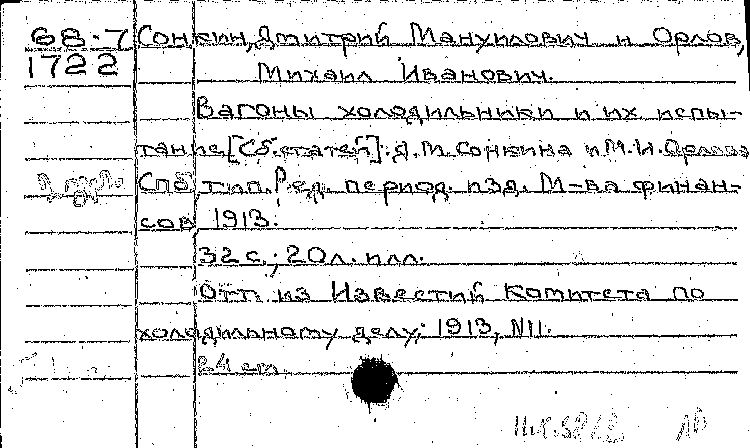 68-7 Сонкин, Дмитрий Мануилович и Орлов,
1722 Михаил Иванович.
Вагоны холодильники и их испы-
тание [Сб. статей]. Д.М. Сонкина и М.И. Орлова
Спб тип. Ред. период. изд. М-ва финан-
сов 1913.
32 с.; 20 л. илл.
Отт. из Известий Комитета по
холодильному делу; 1913, N11.
24 cm.